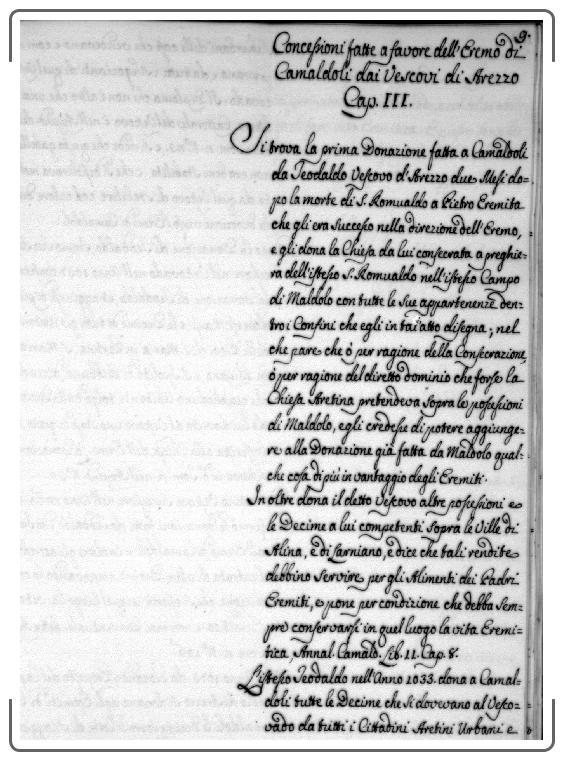 9.
Concessioni fatte a favore dell'Eremo di
Camaldoli dai Vescovi di Arezzo
Cap. III.
Si trova la prima Donazione fatta a Camaldoli
da Teodaldo Vescovo d'Arezzo due Mesi do=
po la morte di S. Romualdo a Pietro Eremita
che gli era successo nella direzione dell'Eremo,
e gli dona la Chiesa da lui consecrata a preghie=
ra dell'istesso S. Romualdo nell'istesso Campo
di Maldolo con tutte le sue appartenenze den=
tro i Confini che egli in tai atto disegna; nel
che pare che ò per ragione della Consecrazione,
ò per ragione del diretto dominio che forse la
Chiesa Aretina pretendeva sopra le possessioni
di Maldolo, egli credesse di potere aggiunge=
re alla Donazione già fatta da Maldolo qual=
che cosa di più in vantaggio degli Eremiti.
In oltre dona il detto Vescovo altre possessioni e
le Decime a lui competenti sopra le Ville di
Alina, e di Larniano, e dice che tali rendite
debbino servire per gli Alimenti dei Padri
Eremiti, e pone per condizione che debba sem=
pre conservarsi in quel luogo la vita Eremi=
tica, Annal. Camald. Lib. 11. Cap. 8.
L'istesso Teodaldo nell'Anno 1033. dona a Camal=
doli tutte le Decime che si dovevano al Vesco=
vado da tutti i Cittadini Aretini Urbani e